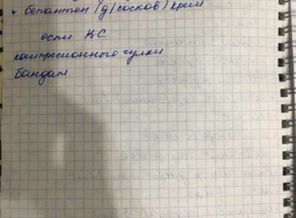 • бепантен (д/сосков) крем
если КС
компресионного чулки
Бандаж